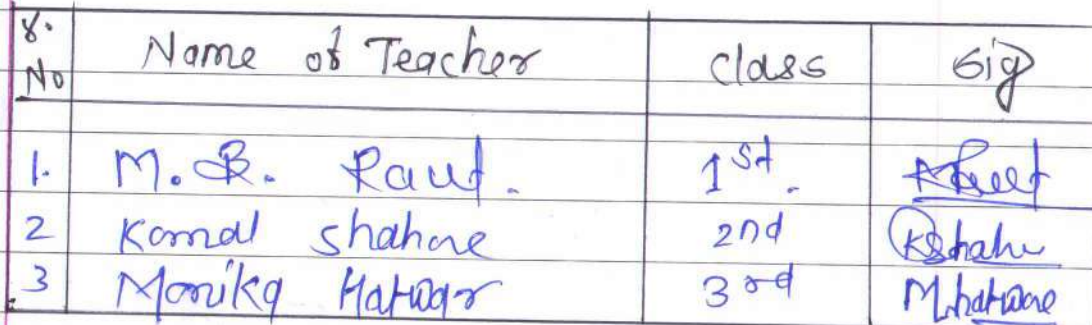 S. No Name of Teacher Class Sig
1. M. B. Raut. 1st.
2 Komal Shahare 2nd KShahe
3 Monika Hatwar 3rd Mhatware